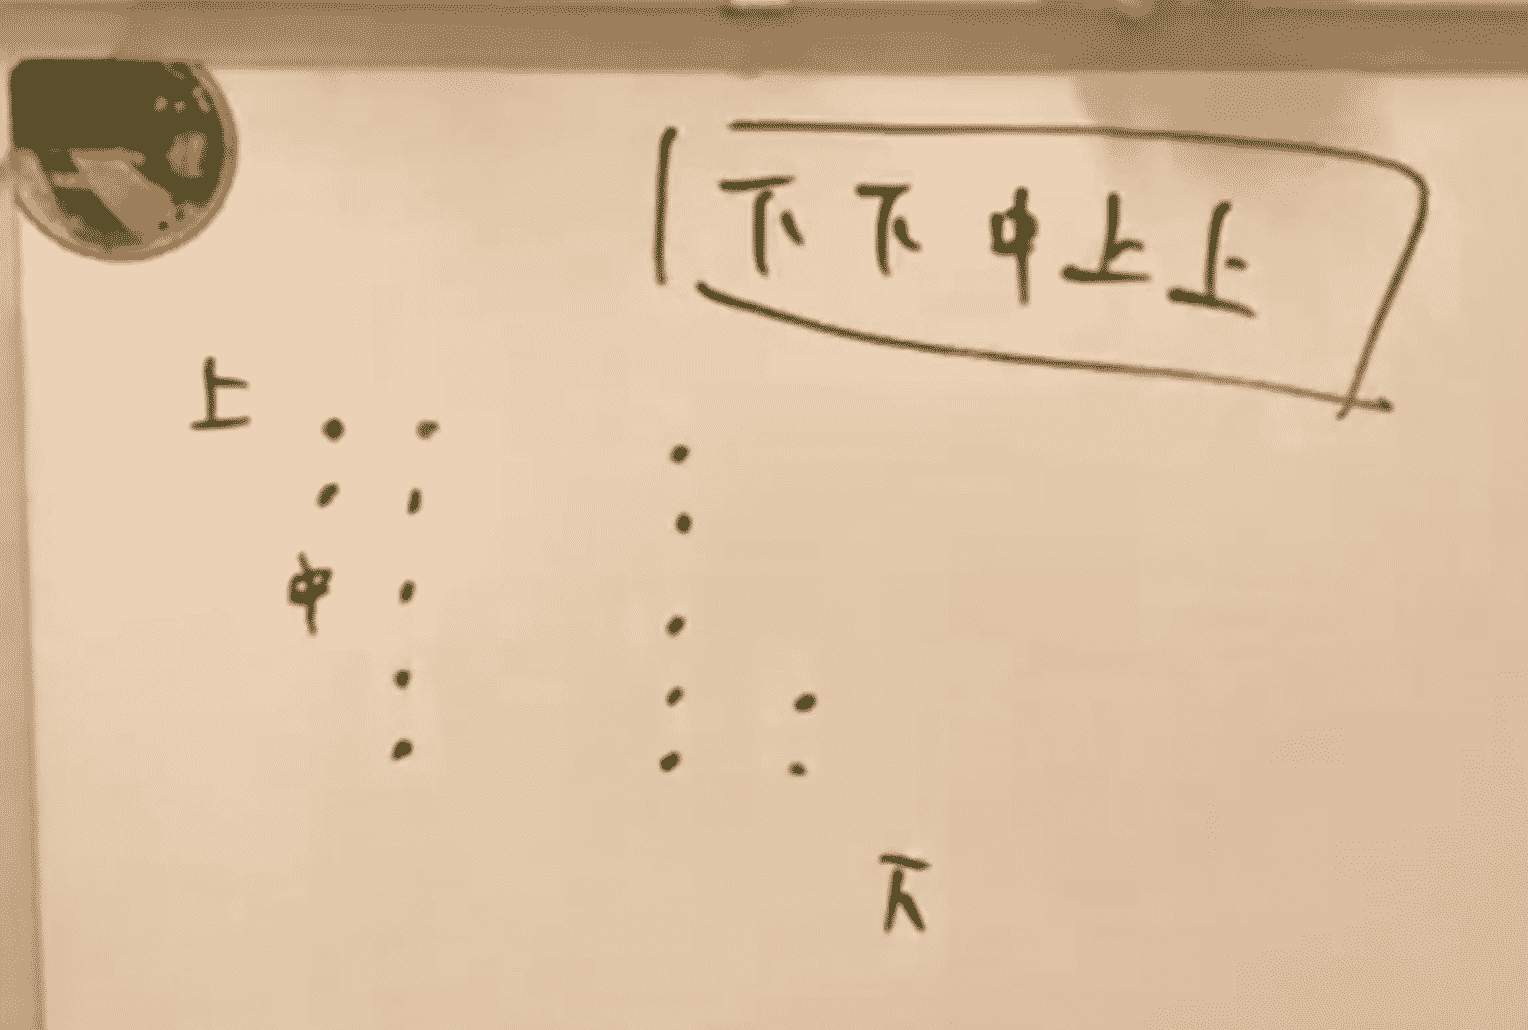 下下中上上
上
中
下